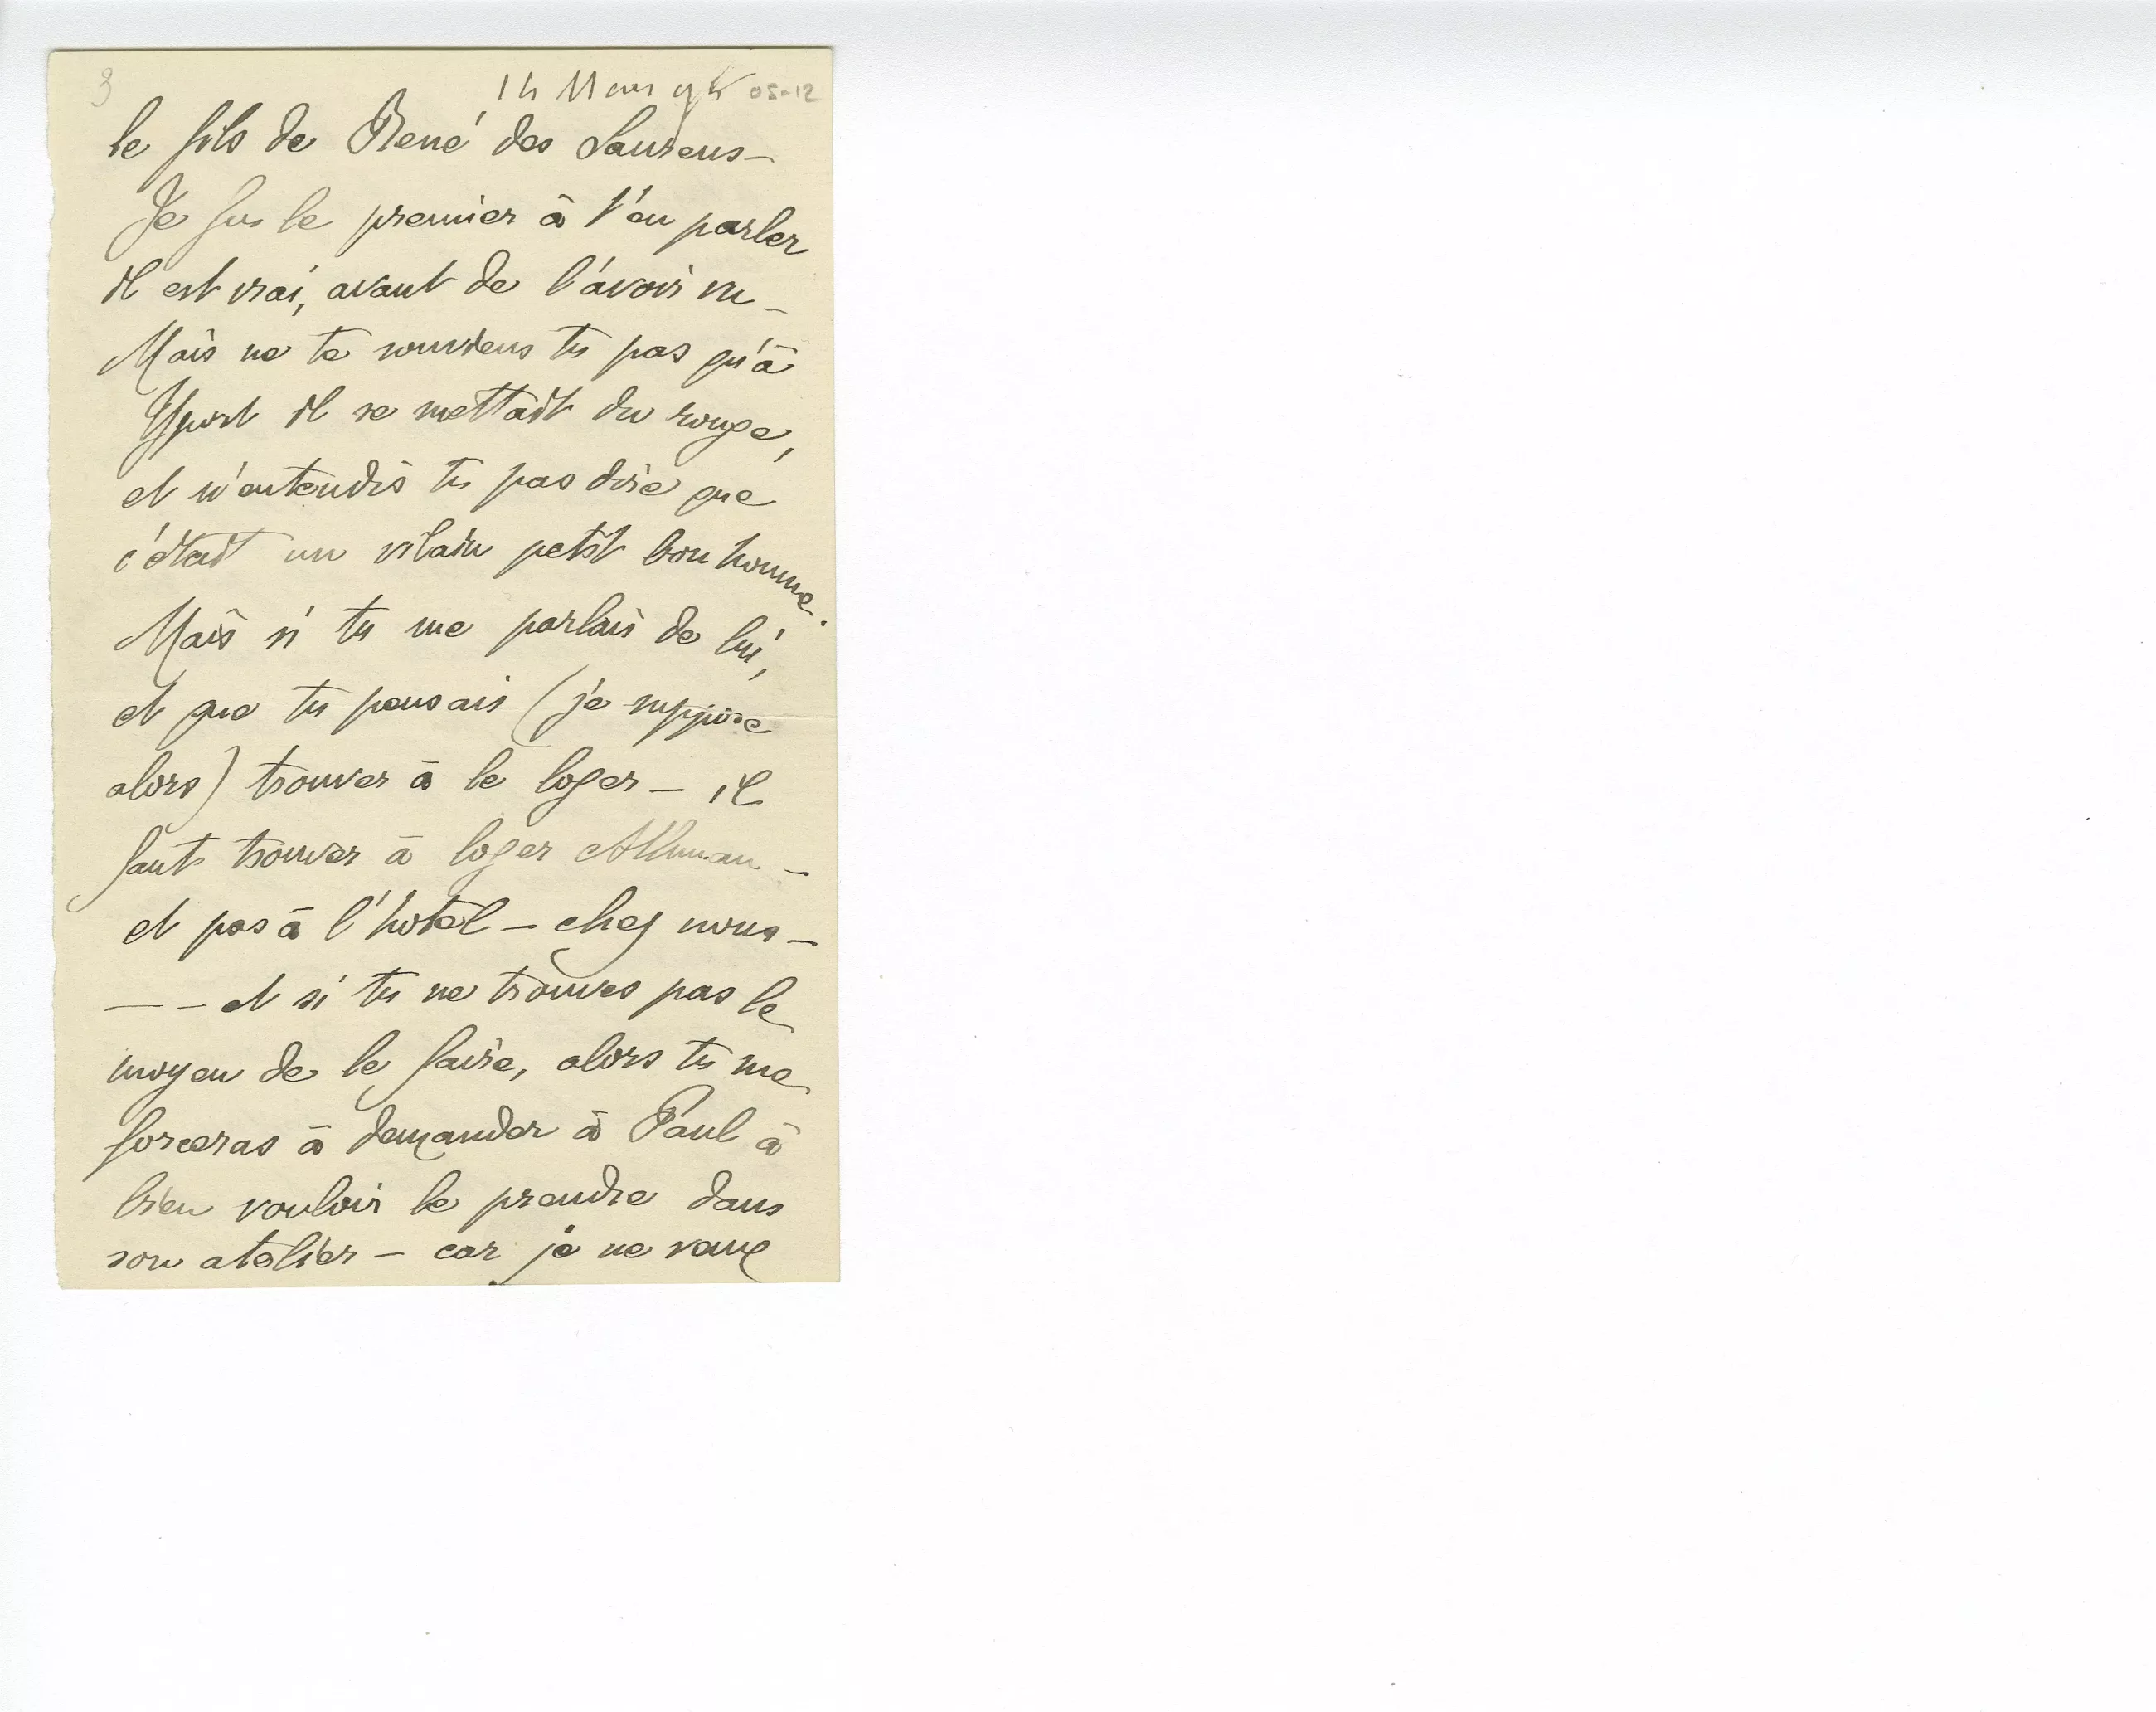 3
14 Mars 95 05-12
le fils de René des Laurens –
Je fus le premier à t'en parler
il est vrai, avant de l'avoir vu –
Mais ne te souviens tu pas qu'à
Yport il se mettait du rouge,
et n'entendis tu pas dire que
c'était un vilain petit bonhomme.
Mais si tu me parlais de lui,
et que tu pensais (je suppose
alors) trouver à le loger – il
faut trouver à loger Allman –
et pas à l'hotel – chez nous –
– – et si tu ne trouves pas le
moyen de le faire, alors tu me
forceras à demander à Paul à
bien vouloir le prendre dans
son atelier – car je ne veux